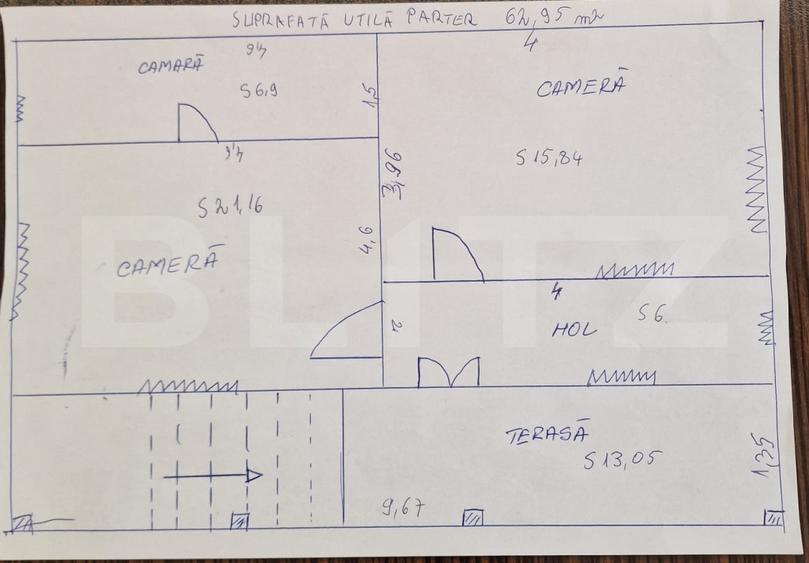 SUPRAFAȚĂ UTILĂ PARTER 62,95 m2
4,6
4
CAMARĂ
CAMERĂ
S 6,9
1,5
4,6
S 15,84
3,96
S 21,16
4,6
CAMERĂ
4
S 6
2
HOL
TERASĂ
S 13,05
1,35
9,67
BLITZ